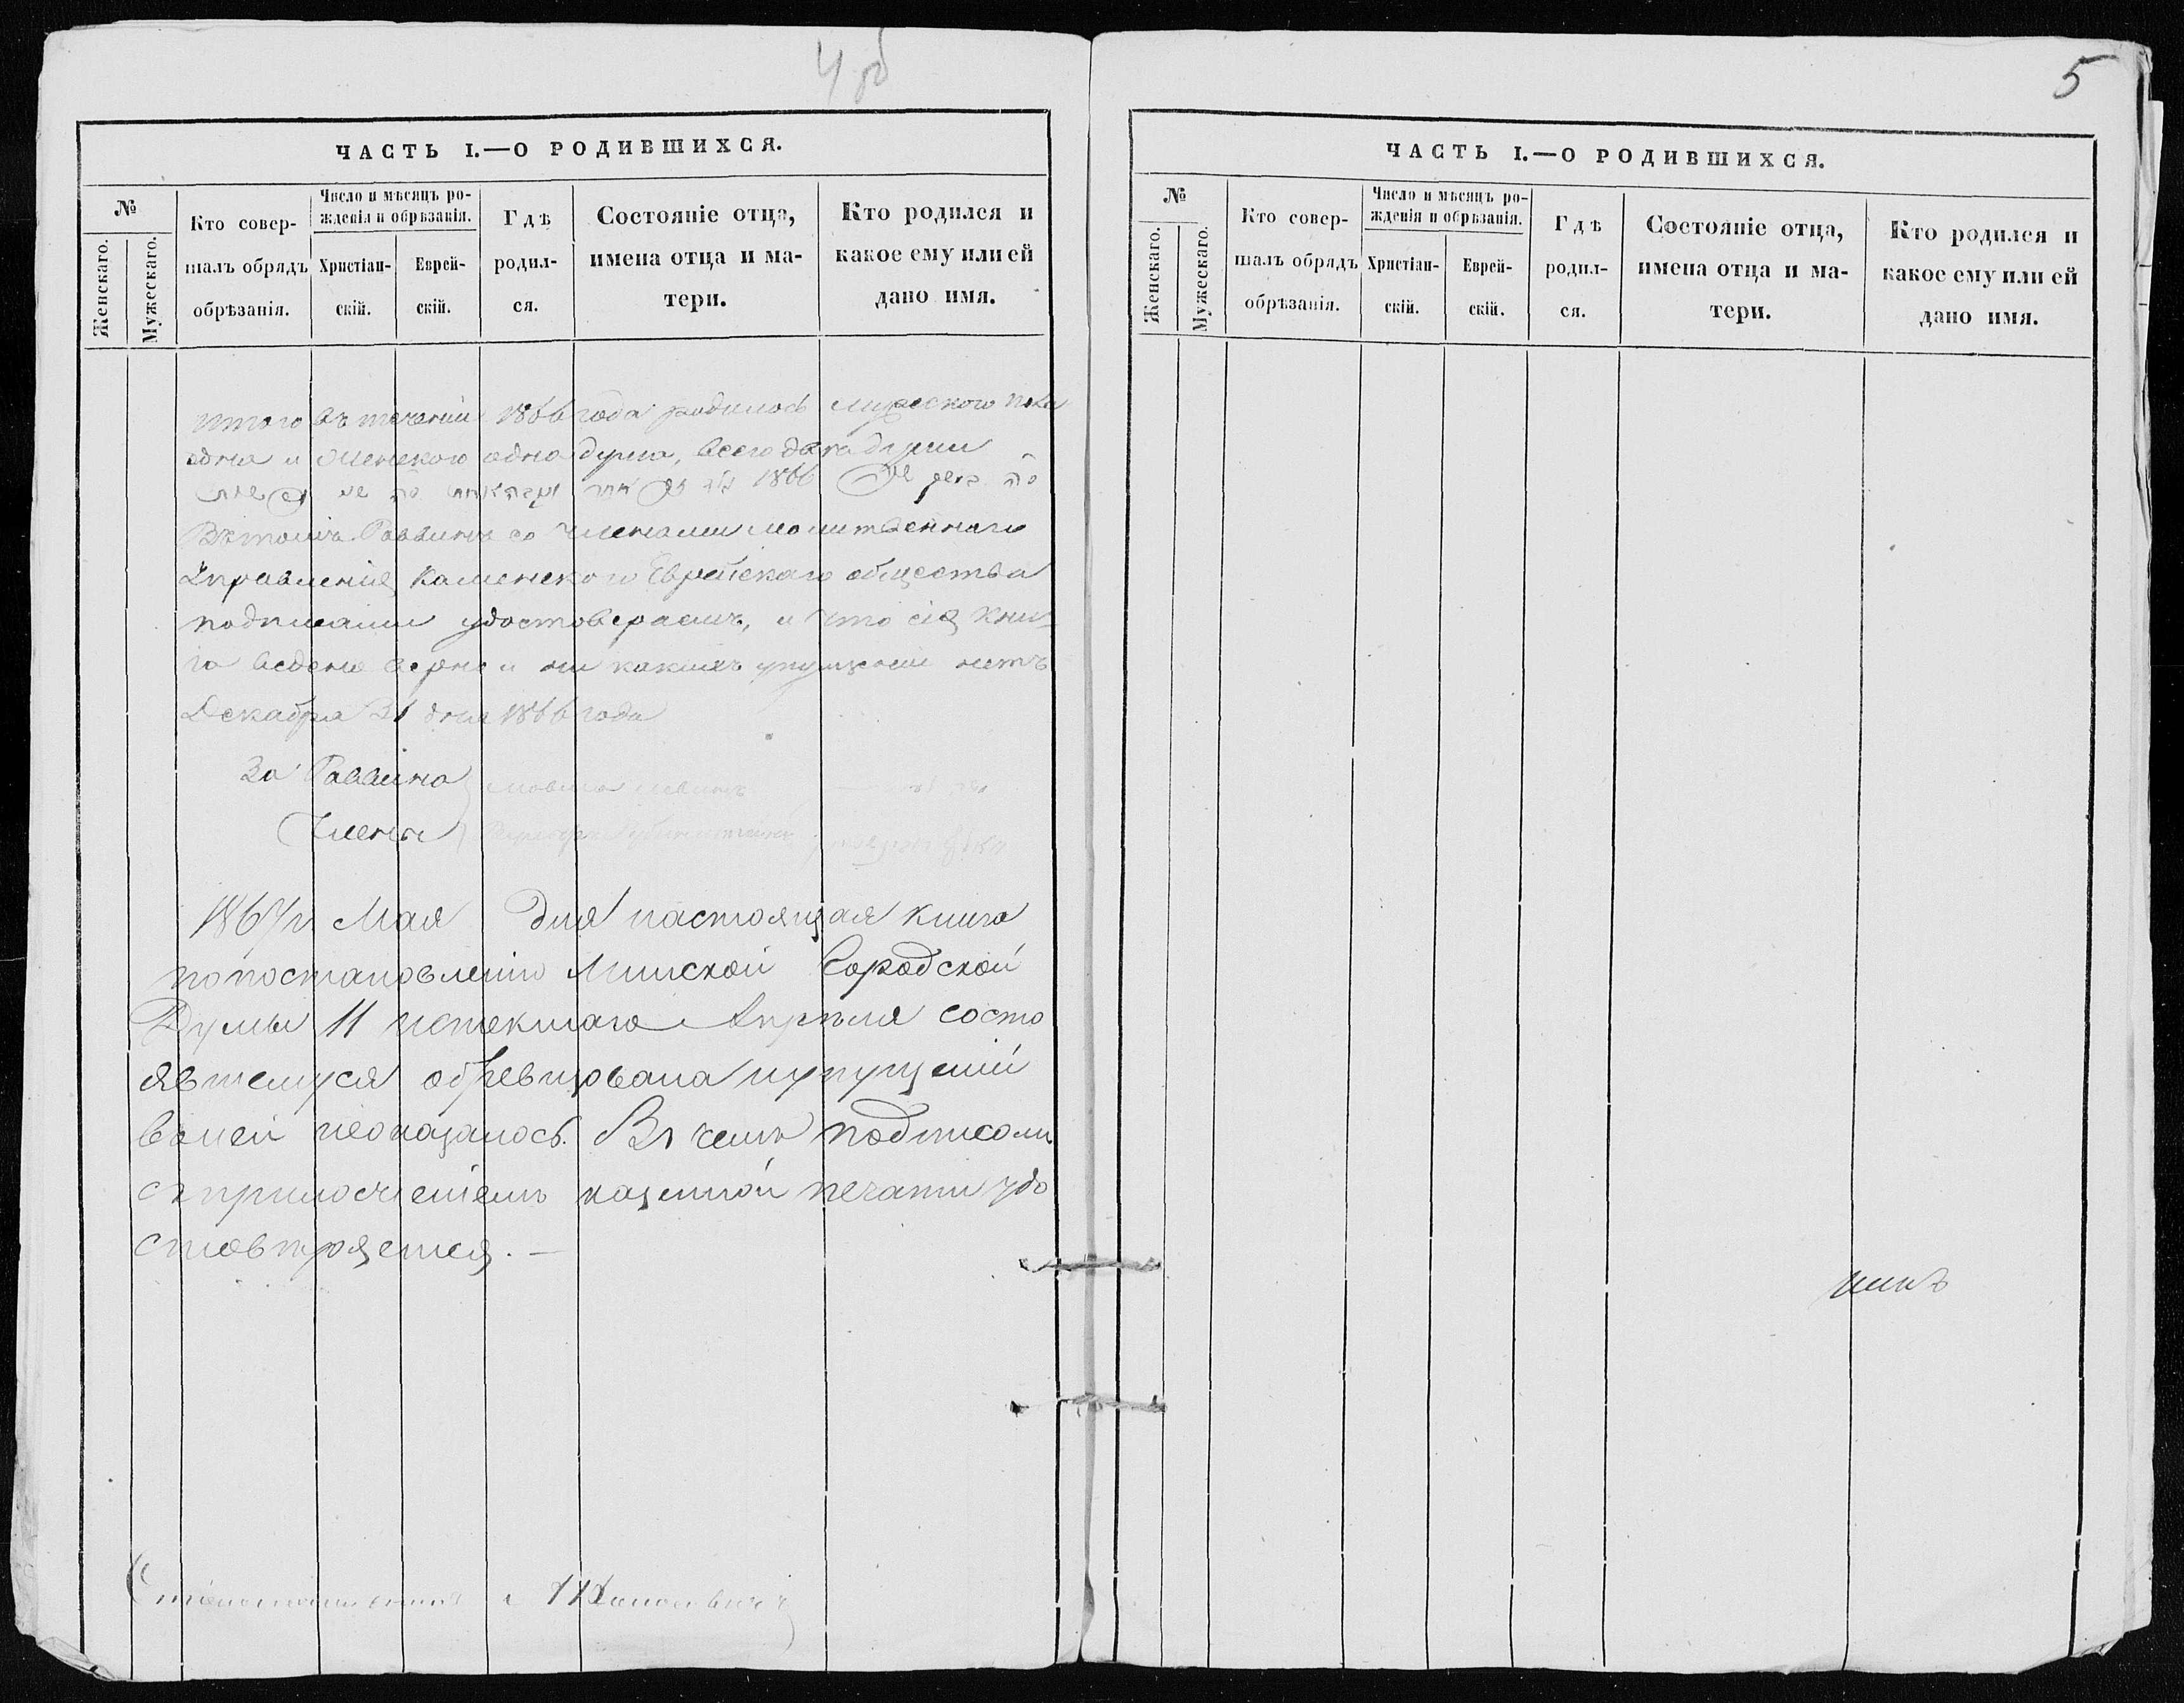 4 об
ЧАСТЬ I.—О РОДИВШИХСЯ.
№
Женскаго.
Мужескаго.
Кто совер-
шалъ обрядъ
обрѣзанія.
Число и мѣсяцъ ро-
жденія и обрѣзанія.
Христіан-
скій.
Еврей-
скій.
Гдѣ
родил-
ся.
Состояніе отца,
имена отца и ма-
тери.
Кто родился и
какое ему или ей
дано имя.
итого въ течении 1866 года родилось мужеского пола
одна и женского одна душа, всего два души
1866
В томъ Раввинъ со членами молитвеннаго
Управленія Каменского Еврейскаго общества
подписами удостовераемъ, и что сія кни-
га ведена верно и ни какихъ упущений нетъ
Декабря 31 дня 1866 года
За Раввина
Члены
1867 г. Мая дня настоящая книга
по постановленію Минской Городской
Думы 11 истекшаго Апрѣля состо
явшемуся обревизована и упущеній
в оной неоказалось. Въ чемъ подписом
съ приложеніемъ казенной печати удо
стовѣряется. —
5
ЧАСТЬ I.—О РОДИВШИХСЯ.
№
Женскаго.
Мужескаго.
Кто совер-
шалъ обрядъ
обрѣзанія.
Число и мѣсяцъ ро-
жденія и обрѣзанія.
Христіан-
скій.
Еврей-
скій.
Гдѣ
родил-
ся.
Состояніе отца,
имена отца и ма-
тери.
Кто родился и
какое ему или ей
дано имя.